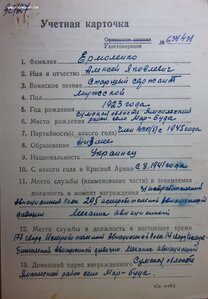 Учетная карточка
Орденская книжка
Удостоверение № 634431
1. Фамилия Ермоленко
2. Имя и отчество Алексей Яковлевич
3. Воен. звание Старший сержант
4. Пол мужской
5. Год рождения 1923 года
Место рождения Сумская область Ямпольский
район село Мар-Буда
7. Партийность(с какого года) Член ВКП(б) с 1945 года
8. Образование Низшее
9. Национальность Украинец
10. С какого года в Красной Армии С 8.1941 года
11. Место службы (наименование части) и занимаемая
должность к моменту награждения Истребительный
авиационный полк 295 истребительной авиационной
дивизии Механик авиационный
12. Место службы и должность в настоящее время
авиационный
13. Домашний адрес награжденного Сумская область
Ямпольский район село Мар-Буда
(См. на об.)